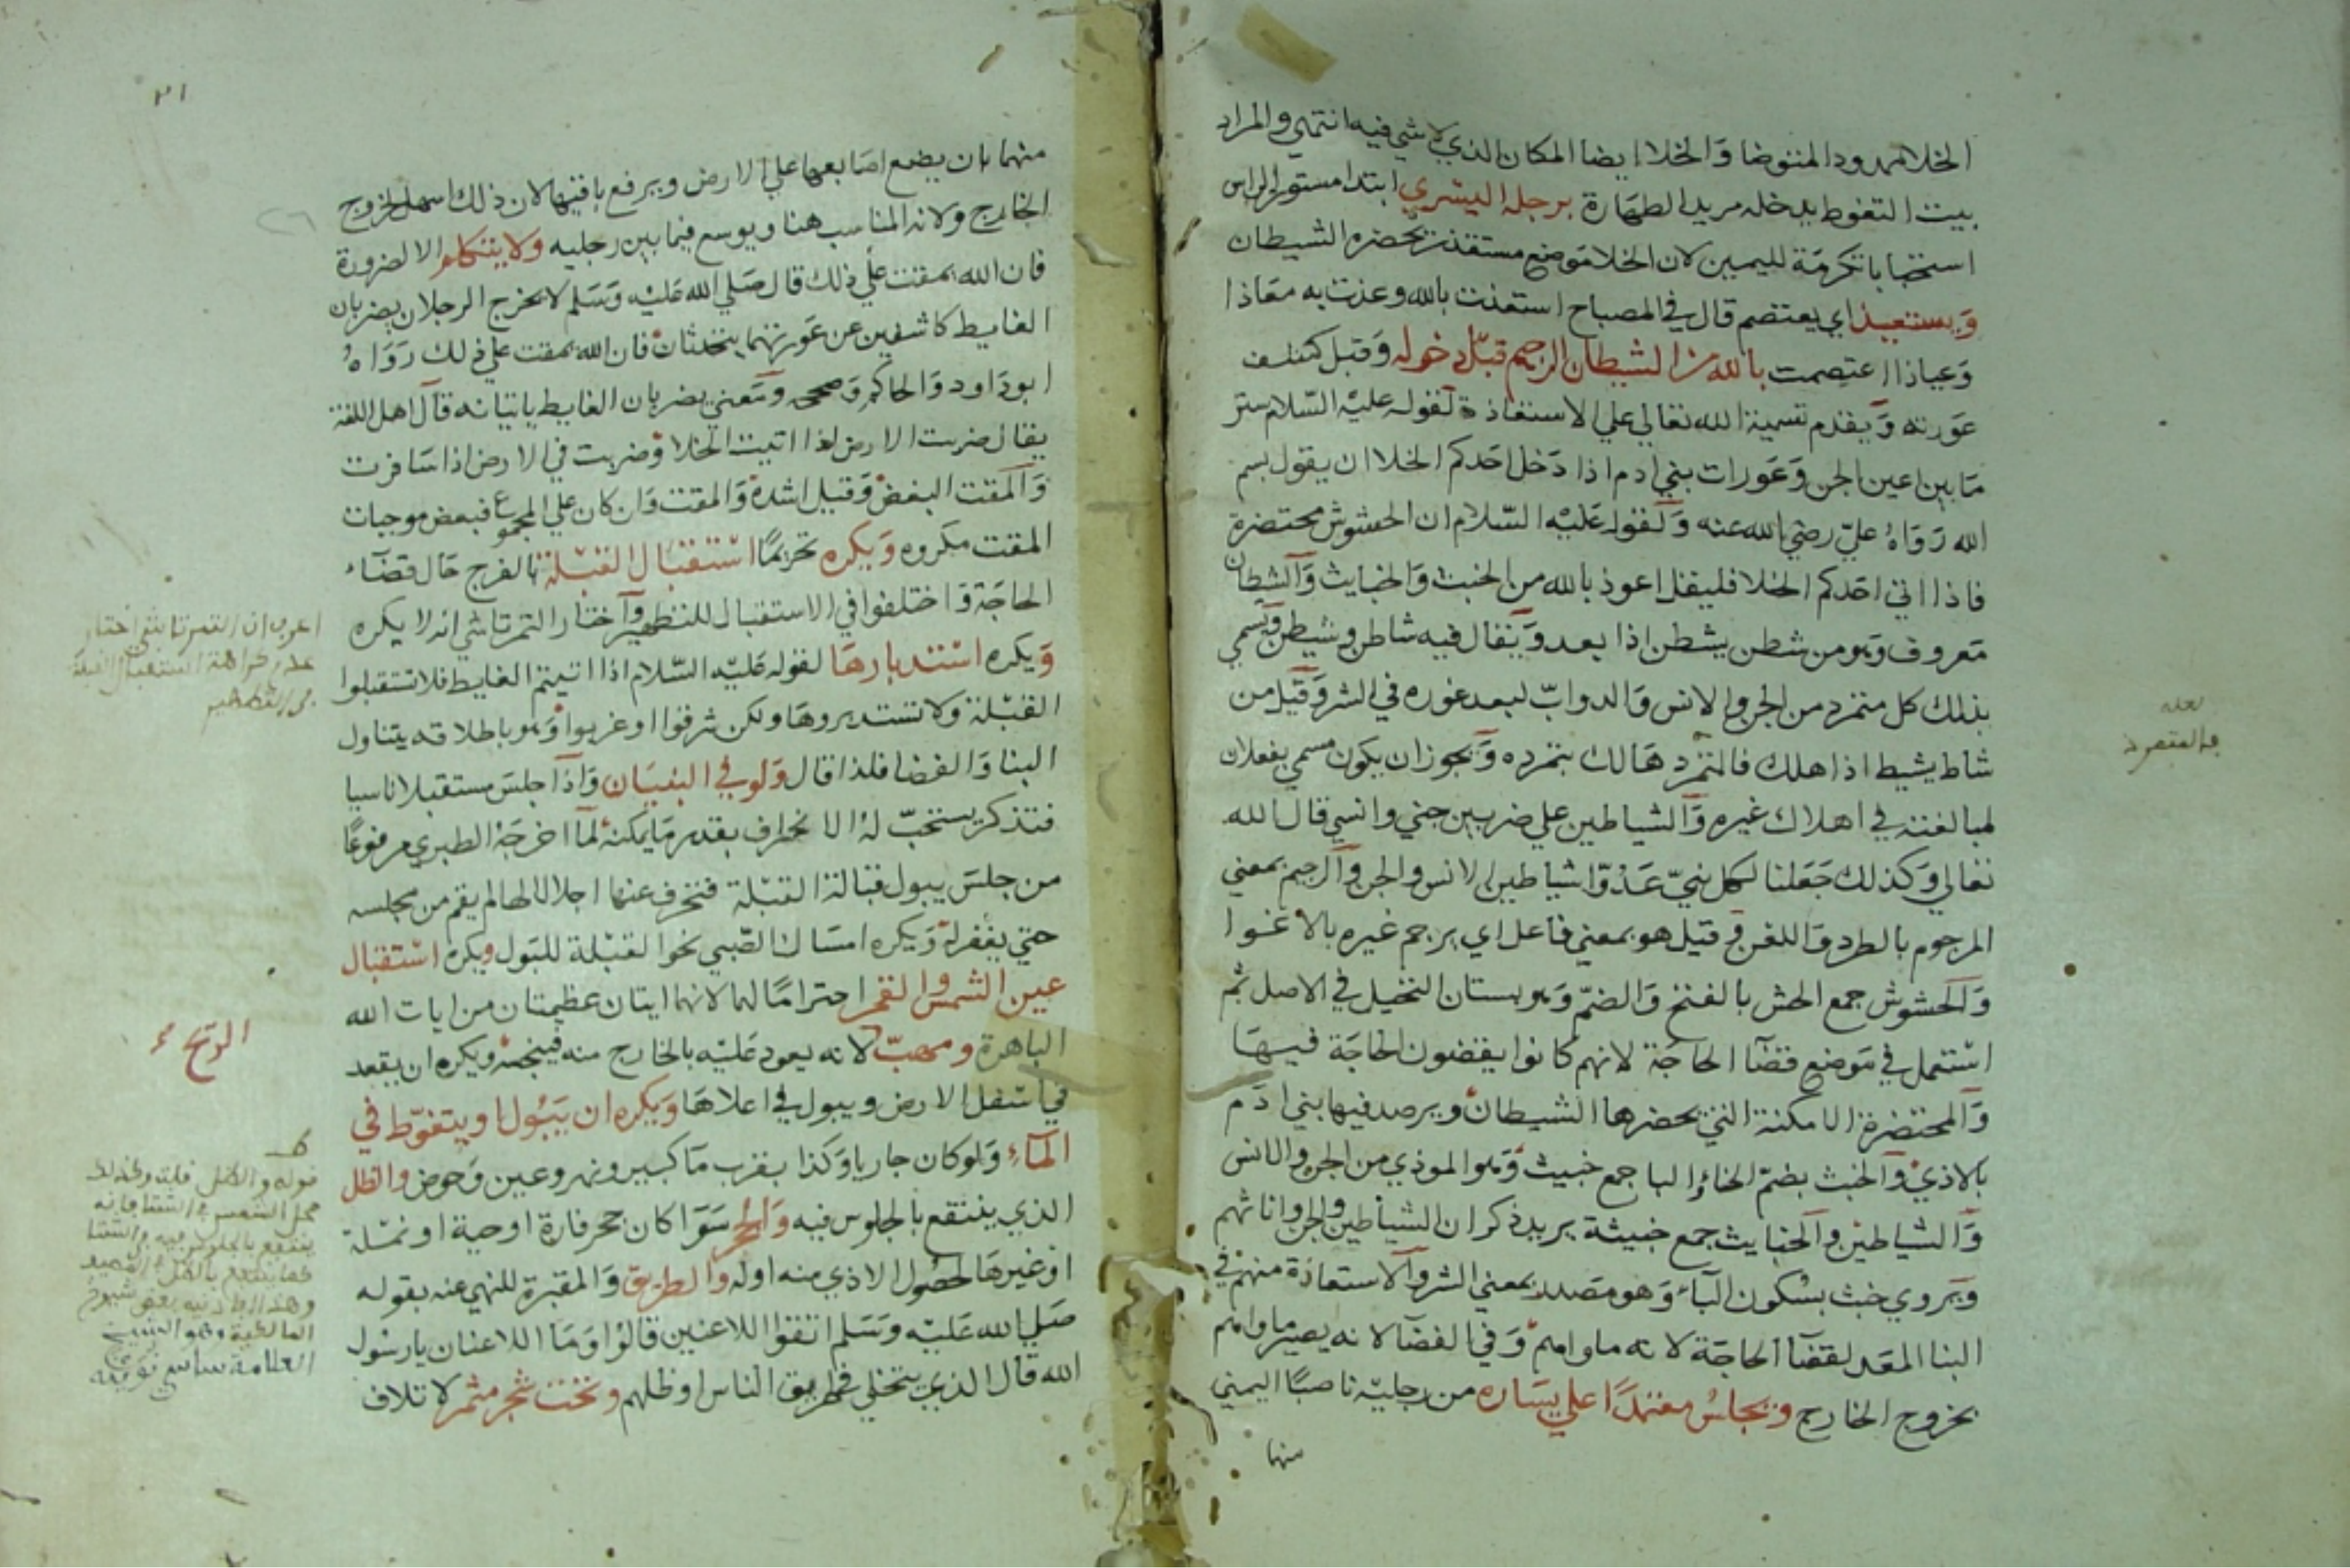 الخلا ممدود المتوضا وَالخلا ايضا المكان الذي لا شي فيه انتهي والمراد
بيت التغوط يدخله مريد الطهَارة برجله اليسري ابتدا مستور الراس
استحبابا تكرمَة لليمين لان الخلا مَوضع مستقذر يحضره الشيطان
وَيستعيذ اي يعتصم قال في المصباح استعذت بالله وعذت به معَاذا
وَعياذا اعتصمت بالله من الشيطان الرجيم قبل دخوله وَقبل كشف
عَورته وَيقدم تسمية الله تعالي علي الاستعاذة لقوله عليه السّلام ستر
مَا بين اعين الجن وَعَورات بني ادم اذا دَخل احَدكم الخلا ان يقول بسم
الله رَوَاهُ عليّ رضي الله عنه وَلقوله عَليْه السّلام ان الحشوش محتضرة
فاذا اتي احَدكم الخلا فليقل اعوذ بالله من الخبث وَالخبايث وَالشيطان
مَعروف وَهو من شطن يشطن اذا بعد وَيقال فيه شاطن وشيطن وَيسمي
بذلك كل متمرد من الجن والانس وَالدوابّ لبعد غوره في الشر وَقيل من
شاط يشيط اذا هلك فالمتمرد هَالك بتمرده وَيجوز ان يكون مسمي بفعلان
لمبالغته في اهلاك غيره وَالشياطين علي ضربين جني وانسي قال الله
تعالي وَكذلك جَعَلنا لكل نبيّ عَدوّا شياطين الانس والجن وَالرجيم بمعني
المرجوم بالطرد وَاللعن وَقيل هو بمعني فاعل اي يرجم غيره بالاغوا
وَالحشوش جمع الحش بالفتح وَالضمّ وَهو بستان النخيل في الاصل ثم
اسْتعمل في مَوضع قضآ الحاجَة لانهم كانوا يقضون الحاجَة فيهَا
وَالمحتضرة الامكنة التي يحضرها الشيطان ويرصد فيها بني ادَم
بالاذي وَالخبث بضمّ الخاء والبا جمع خبيث وَهو الموذي من الجن والانس
وَالشياطين وَالخبايث جمع خبيثة يريد ذكران الشياطين والجن واناثهم
وَيروي خبث بسْكون البآء وَهو مصَدر بمعني الشر وَالاستعاذة منهم في
البنا المعَد لقضآ الحاجَة لانه ماواهم وَفي الفضآ لانه يصير ماواهم
بخروج الخارج ويجلسُ معتمدًا علي يسَاره من رجليْه ناصبًا اليمني
منهما
لعله
فالمتمرد
٢١
منهما بان يضع اصَابعهَا علي الارض ويرفع باقيها لان ذلك اسهل لخروج
الخارج ولانه المناسب هنا ويوسع فيما بين رجليه وَلا يتكلم الا لضرورة
فان الله يمقت علي ذلك قال صَلي الله عَليْه وَسَلم لا يخرج الرجلان يضربان
الغايط كاشفين عن عَورتهما يتحدثان فان الله يمقت علي ذلك رَوَاهُ
ابو دَاود وَالحاكم وَصححه وَمَعني يضربان الغايط ياتيانه قال اهل اللغة
يقال ضربت الارض اذا اتيت الخلا وَضربت في الارض اذا سَافرت
وَالمقت البغض وَقيل اشده وَالمقت وَان كان علي المجموع فبعض موجبات
المقت مكروه وَيكره تحريمًا اسْتقبَال القبْلة بالفرج حَال قضَآء
الحاجَة وَاختلفوا في الاستقبال للتطهير وَاختار التمرتاشي انه لا يكره
وَيكره اسْتدبارهَا لقوله عَليْه السّلام اذا اتيتم الغايط فلا تستقبلوا
القبْلة وَلا تستدبروهَا ولكن شرقوا او غربوا وَهو باطلاقه يتناول
البنا وَالفضا فلذا قال وَلو في البنيَان وَاذا جلسَ مستقبلا ناسيا
فتذكر يستحبّ لهُ الانحراف بقدر مَا يمكنهُ لما اخرجَهُ الطبري مرفوعًا
من جلسَ يبول قبالة القبْلة فتحرف عنها اجلالا لها لم يقم من مجلسه
حتي يغفر لهُ وَيكره امسَاك الصّبي نحو القبْلة للبَول ويكره اسْتقبَال
عين الشمس والقمر احترامًا لهما لانهما ايتان عظيمتان من ايات الله
الباهرة ومهبّ لانه يعود عَليْه بالخارج منه فينجسْه ويكره ان يقعد
في اسْفل الارض ويبول في اعلاهَا وَيكره ان يَبُول او يتغوّط في
المآء وَلو كان جاريا وَكذا بقرب مَا كبير ونهر وعين وَحوض والظل
الذي ينتفع بالجلوس فيه وَالجحر سَوَا كان جحر فارة او حية او نمْلة
او غيرهَا لحصُول الاذي منه اوله والطريق وَالمقبرة للنهي عنه بقوله
صَلي الله عَليْه وَسَلم اتقوا اللاعنين قالوُا وَمَا اللاعنان يا رسُول
الله قال الذي يتخلي في طريق الناس او ظلهم وتحت شجر مثمر لاتلاف
اعرب ان التمرتاشي اختار
عدم كراهة استقبال القبلة
في التطهير
الريح
قوله والظل قلت وكذلك
محل الشمس في الشتا فانه
ينتفع بالجلوس فيه في الشتا
كما ينتفع بالظل في الصيف
وهذا افادنيه بعض شيوخ
المالكية وهو الشيخ
العلامة